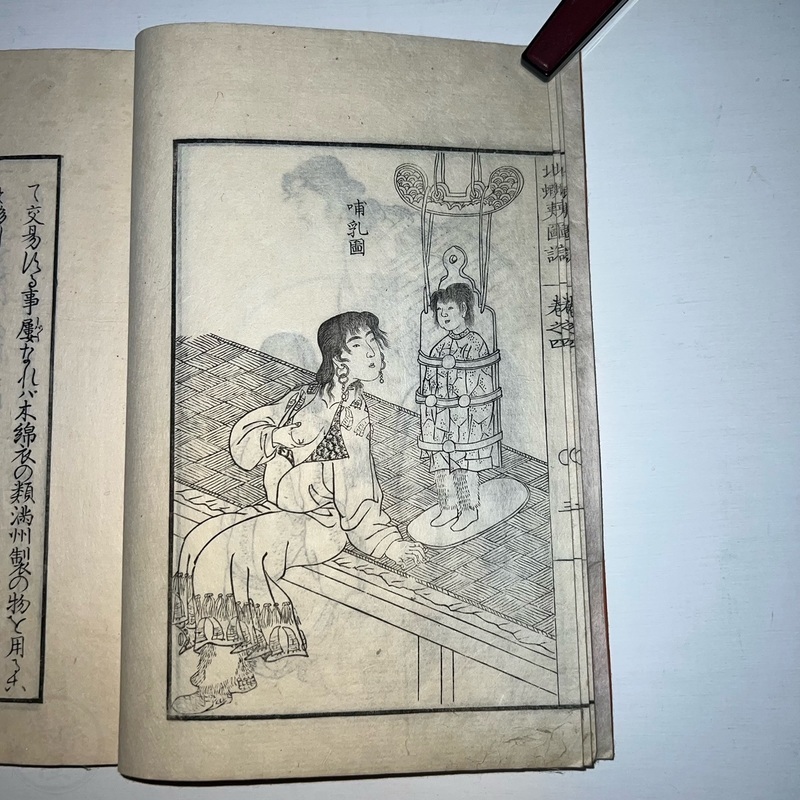 哺乳圖
北蝦夷圖説
巻之四
三
て交易する事屢なれバ木綿衣の類満州製の物を用ゆ